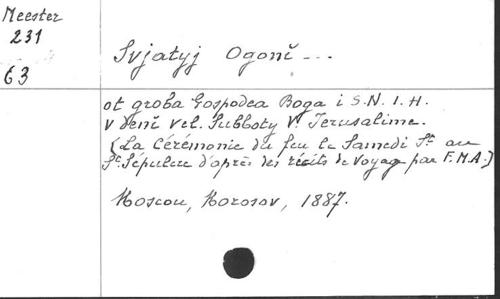 Meester
231
63
Svjatyj Ogonĭ ...
ot groba Gospodea Boga i S.N. I. H.
v denĭ vel. Subboty V. Jerusalime.
(La Cérémonie du feu le Samedi St au
St. Sépulcre d'après des récits de voyag par F.M.A.)
Moscou, Morosov, 1887.